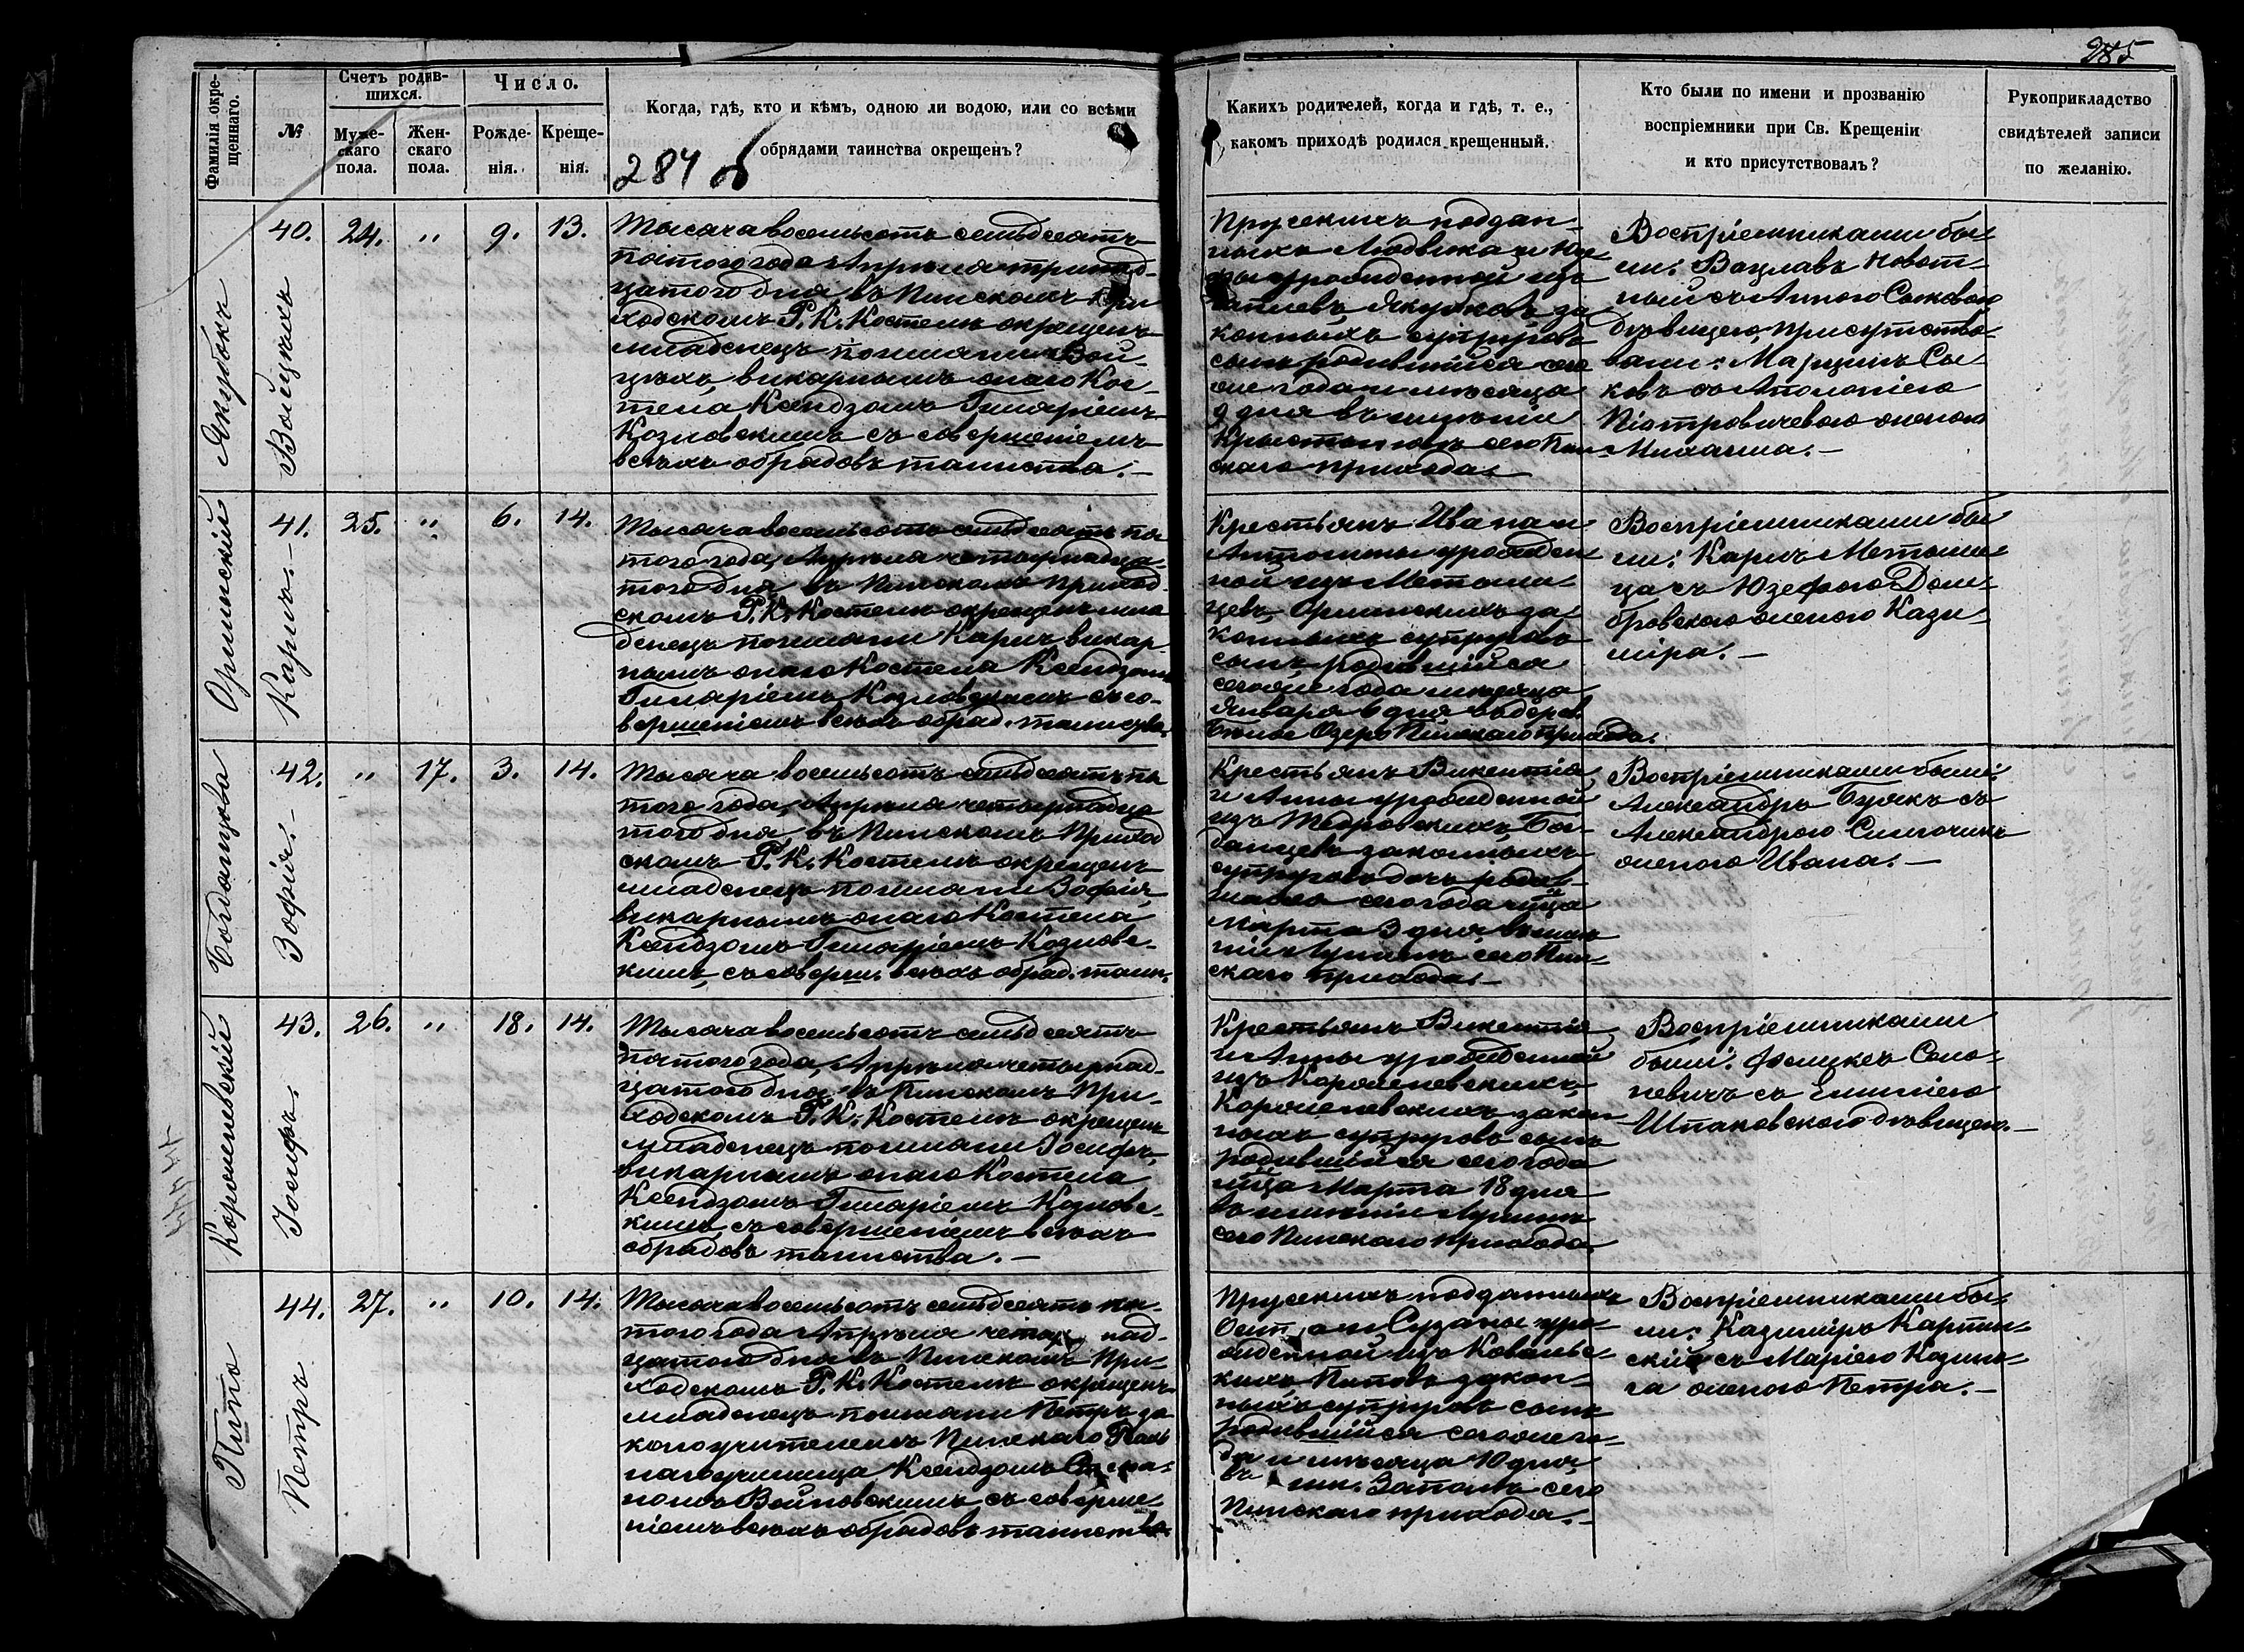 285
Фамилія окре-
щеннаго.
№
Счетъ родив-
шихся.
Муже-
скаго
пола.
Жен-
скаго
пола.
Число.
Рожде-
нія.
Креще-
нія.
Когда, гдѣ, кто и кѣмъ, одною ли водою, или со всѣми
обрядами таинства окрещенъ?
284 об
Какихъ родителей, когда и гдѣ, т. е.,
какомъ приходѣ родился крещенный.
Кто были по имени и прозванію
воспріемники при Св. Крещеніи
и кто присутствовалъ?
Рукоприкладство
свидѣтелей записи
по желанію.
Якубекъ
Войцѣхъ
40. 24. " 9. 13.
Тысяча восемьсотъ семьдесятъ
пятого года Апрѣля тринад-
цатого дня въ Пинскомъ При
ходскомъ Р. К. Костелѣ окрещенъ
младенецъ по имени Вой-
цѣхъ викарнымъ онаго Кос-
тела Ксендзомъ Гиляріемъ
Козловскимъ съ совершеніемъ
всѣхъ обрядовъ таинства. —
Прускихъ поддан-
ныхъ Людвика и
урожденной изъ
Якубковъ за
конныхъ супруговъ
сынъ родившійся сего
же года и мѣсяца
9 дня въ имѣніи
сего Пин-
скаго прихода. —
Воспріемниками бы
ли: Вацлавъ Новот-
ный съ Анною Сыковою
дѣвицею, присутство-
вали: Марцинъ Сы-
ковъ съ Аполоніею
Піотровичевою женою
Михаила. —
Орлинскій
Карлъ. —
41. 25. " 6. 14.
Тысяча восемьсотъ семьдесятъ пя
того года, Апрѣля четырнадца-
того дня въ Пинскомъ Приход-
скомъ Р. К. Костелѣ окрещенъ мла
денецъ по имени Карлъ викар-
нымъ онаго Костела Ксендзомъ
Гиляріемъ Козловскимъ съ со-
вершеніемъ всѣхъ обряд. таинства.
Крестьянъ Ивана и
Антонины урожден
ной изъ Метели-
цевъ Орлинскихъ за-
конныхъ супруговъ
сынъ родившійся
сего же года мѣсяца
Января 6 дня въ дерев.
Бѣлое Озеро Пинскаго прихода.
Воспріемниками бы
ли: Карлъ Метели-
ца съ Юзефою Дом-
бровскою женою Кази-
міра. —
Богданцова
Зофія. —
42. " 17. 3. 14.
Тысяча восемьсотъ семьдесятъ пя
того года, Апрѣля четырнадца
того дня въ Пинскомъ Приход
скомъ Р. К. Костелѣ окрещенъ
младенецъ по имени Зофія,
викарнымъ онаго Костела
Ксендзомъ Гиляріемъ Козловс-
кимъ, съ соверш. всѣхъ обряд. таин.
Крестьянъ Викентія
и Анны урожденной
изъ Бог-
данцевъ законныхъ
супруговъ дочь родив-
шаяся сего года м-ца
Марта 3 дня въ имѣ
ніи сего Пин-
скаго прихода. —
Воспріемниками были:
Александръ Буякъ съ
Александрою
женою Ивана. —
Короленевскій
Іосифъ.
43. 26. " 18. 14.
Тысяча восемьсотъ семьдесятъ
пятого года, Апрѣля четырнад-
цатого дня, въ Пинскомъ При-
ходскомъ Р. К. Костелѣ окрещенъ
младенецъ по имени Іосифъ,
викарнымъ онаго Костела
Ксендзомъ Гиляріемъ Козловс-
кимъ съ совершеніемъ всѣхъ
обрядовъ таинства. —
Крестьянъ Викентія
и Анны урожденной
изъ Короленевскихъ,
Короленевскихъ закон
ныхъ супруговъ сынъ
родившійся сего года
м-ца Марта 18 дня
въ имѣніи
сего Пинскаго прихода.
Воспріемниками
были: Феликсъ
съ Емиліею
Шпаковскою дѣвицею. —
Пипа
Петръ
44. 27. " 10. 14.
Тысяча восемьсотъ семьдесятъ пя-
того года Апрѣля четыр над-
цатого дня въ Пинскомъ При-
ходскомъ Р. К. Костелѣ окрещенъ
младенецъ по имени Петръ за
коноучителемъ Пинскаго Реаль
наго училища Ксендзомъ
Войновскимъ съ соверше-
ніемъ всѣхъ обрядовъ таинства.
Прускихъ подданныхъ
и Сузаны уро-
жденной изъ Ковальс-
кихъ Пиповъ закон-
ныхъ супруговъ сынъ
родившійся сего же го-
да и мѣсяца 10 дня,
въ им. сего
Пинскаго прихода. —
Воспріемниками бы-
ли: Казиміръ Карпин-
скій съ Маріею
женою Петра. —